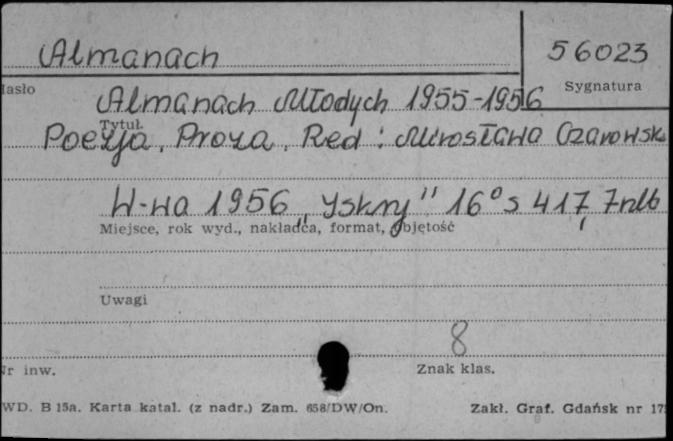 Almanach 56023
Hasło Sygnatura
Almanach Młodych 1955-1956
Tytuł
Poezja, Proza, Red: Mirosława Czarowsk
W-wa 1956 „Yskry" 16° s 417, 7nlb
Miejsce, rok wyd., nakładca, format, objętość
Uwagi
8
Nr inw. Znak klas.
WD. B 15a. Karta katal. (z nadr.) Zam. 658/DW/On. Zakł. Graf. Gdańsk nr 17